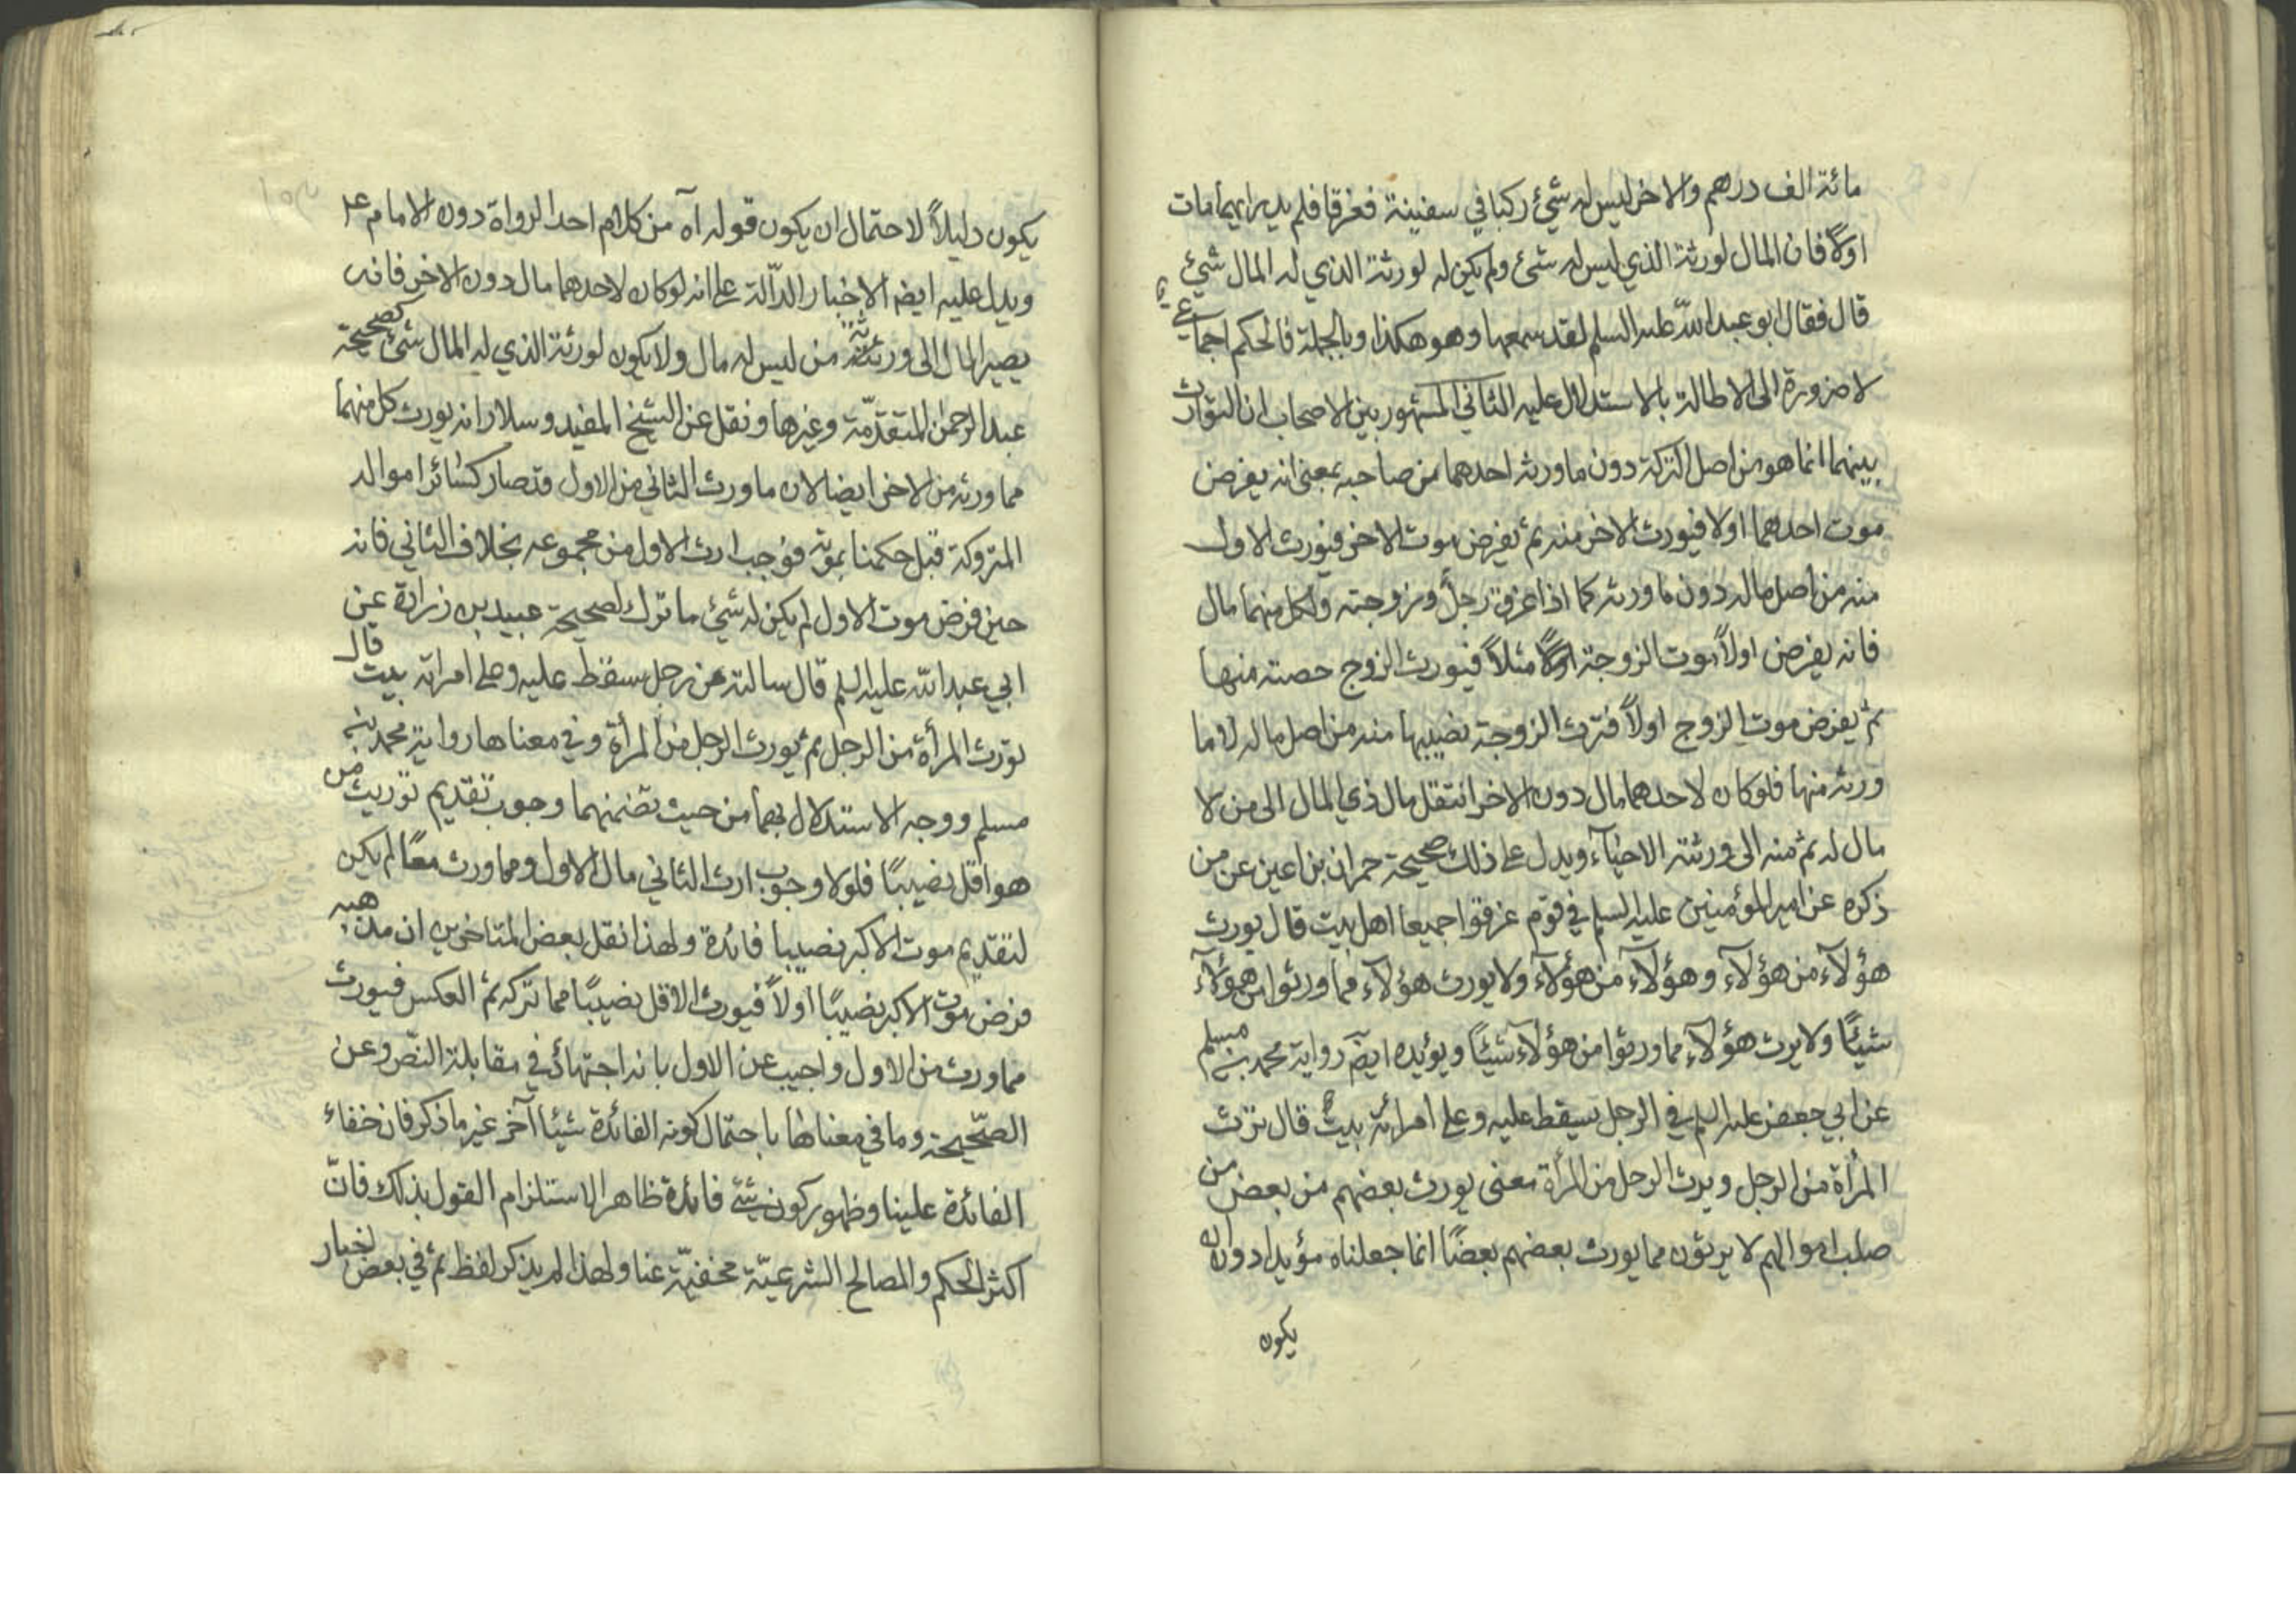 مائة الف درهم والاخر ليس له شيء ركبا في سفينة فغرقا فلم يدر ايهما مات
اولا فان المال لورثة الذي ليس له شئ ولم يكن له لورثة الذي له المال شيئ
قال فقال ابو عبد الله عليه السلم لقد سمعها وهو هكذا وبالجملة فالحكم اجماعي
لا ضرورة الى الاطالة بالاستدلال عليه الثاني المشهور بين الاصحاب ان التوارث
بينهما انما هو من اصل التركة دون ما ورثه احدهما من صاحبه بمعنى انه يفرض
موت احدهما اولا فيورث الاخر منه ثم يفرض موت الاخر فيورث الاول
منه من اصل ماله دون ما ورثه كما اذا غرق رجل وزوجته ولكل منهما مال
فانه يفرض اولاً موت الزوجة اولا مثلاً فيورث الزوج حصته منها
ثم يفرض موت الزوج اولاً فترث الزوجة نصيبها منه من اصل ماله لا وما
ورثه منها فلو كان لاحدهما مال دون الاخر انتقل مال ذي المال الى من لا
مال له ثم منه الى ورثته الاحياء ويدل على ذلك صحيحة حمران بن اعين عن من
ذكره عن امير المؤمنين عليه السلم في قوم غرقوا جميعا اهل بيت قال يورث
هؤلآء من هؤلآء وهؤلآء من هؤلآء ولا يورث هؤلآء فما ورثوا من هؤلآء
شيئًا ولا يرث هؤلآء مما ورثوا من هؤلآء شيئًا ويؤيده ايضً رواية محمد بن مسلم
عن ابي جعفر عليه السلم في الرجل سقط عليه وعلى امرأته بيت قال ترث
المرأة من الرجل ويرث الرجل من المرأة معنى يورث بعضهم من بعض من
صلب اموالهم لا يرثون مما يورث بعضهم بعضًا انما جعلناه مؤيدا دون ان
يكون
يكون دليلاً لاحتمال ان يكون قوله آه من كلام احد الرواة دون الامام ع
ويدل عليه ايضً الاخبار الدالّة على انه لو كان لاحدهما مال دون الاخر فانه
يصير المال الى ورثة من ليس له مال ولا يكون لورثة الذي له المال شئ كصحيحة
عبد الرحمن المتقدّمة وغيرها ونقل عن الشيخ المفيد وسلار انه يورث كل منهما
مما ورثه من الاخر ايضا لان ما ورث الثاني من الاول قد صار كسائر امواله
المتروكة قبل حكمنا بموته فوجب ارث الاول من مجموعه بخلاف الثاني فانه
حين فرض موت الاول لم يكن له شئ ما ترك لصحيحة عبيد بن زرارة عن
ابي عبد الله عليه السلم قال سالته عن رجل سقط عليه وعلى امراته بيت قال
تورث المرأة من الرجل ثم يورث الرجل من المرأة وفي معناها رواية محمد بن
مسلم ووجه الاستدلال بهما من حيث تضمنهما وجوب تقديم توريث من
هو اقل نصيبًا فلولا وجوب ارث الثاني مال الاول ومما ورث معًا لم يكن
لتقديم موت الاكبر نصيبا فائدة ولهذا نقل بعض المتاخرين ان مذهبه
فرض موت الاكبر نصيبًا اولاً فيورث الاقل نصيبًا مما تركه ثم العكس فيورث
مما ورث من الاول واجيب عن الاول بانه اجتهاد في مقابلة النصّ وعن
الصحّيحة وما في معناها باحتمال كونه الفائدة شيئا آخر غير ما ذكر فان خفاء
الفائدة علينا وظهور كون شئ فائدة ظاهرا لا ستلزام القول بذلك فانّ
اكثر الحكم والمصالح الشرعيّة مخفيّة عنا ولهذا لم يذكر لفظ ثم في بعض اخبار